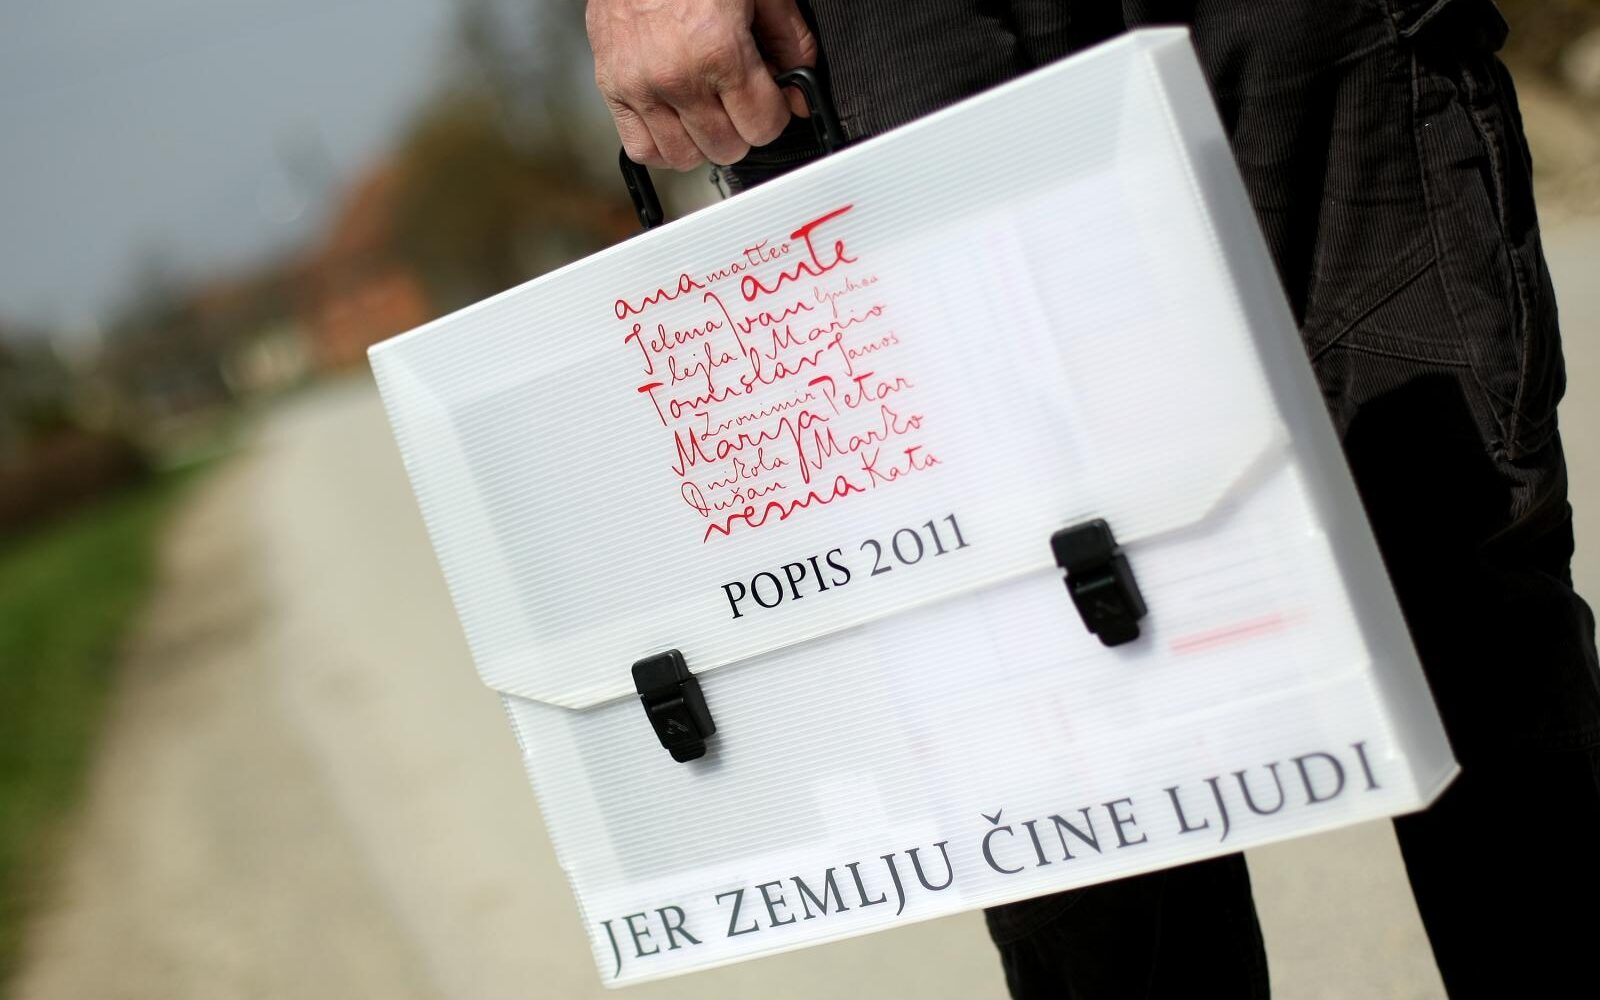 ana matteo Ante
Jelena Ivan ljubica
lejla Mario
Tomislav Janoš
Zvonimir Petar
Marija Marko
nikola
Dušan
vesna Kata
POPIS 2011
JER ZEMLJU ČINE LJUDI